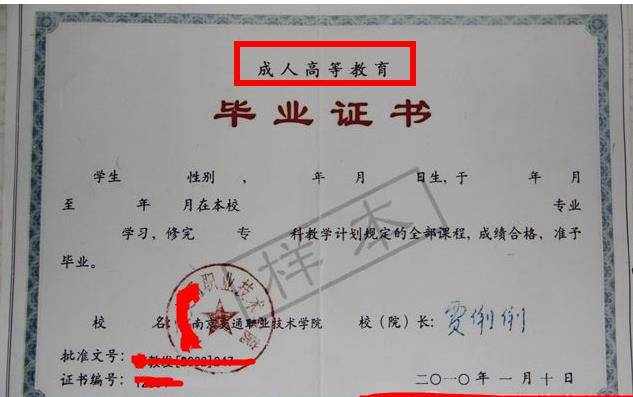 成人高等教育
毕业证书
学生 性别 , 年 月 日生,于 年 月
至 年 月在本校 专业
学习,修完 专 科教学计划规定的全部课程,成绩合格,准予
毕业。
样本
职业技术
校 名: 南京交通职业技术学院 校(院)长:
批准文号:
证书编号:
二〇一〇年一月十日